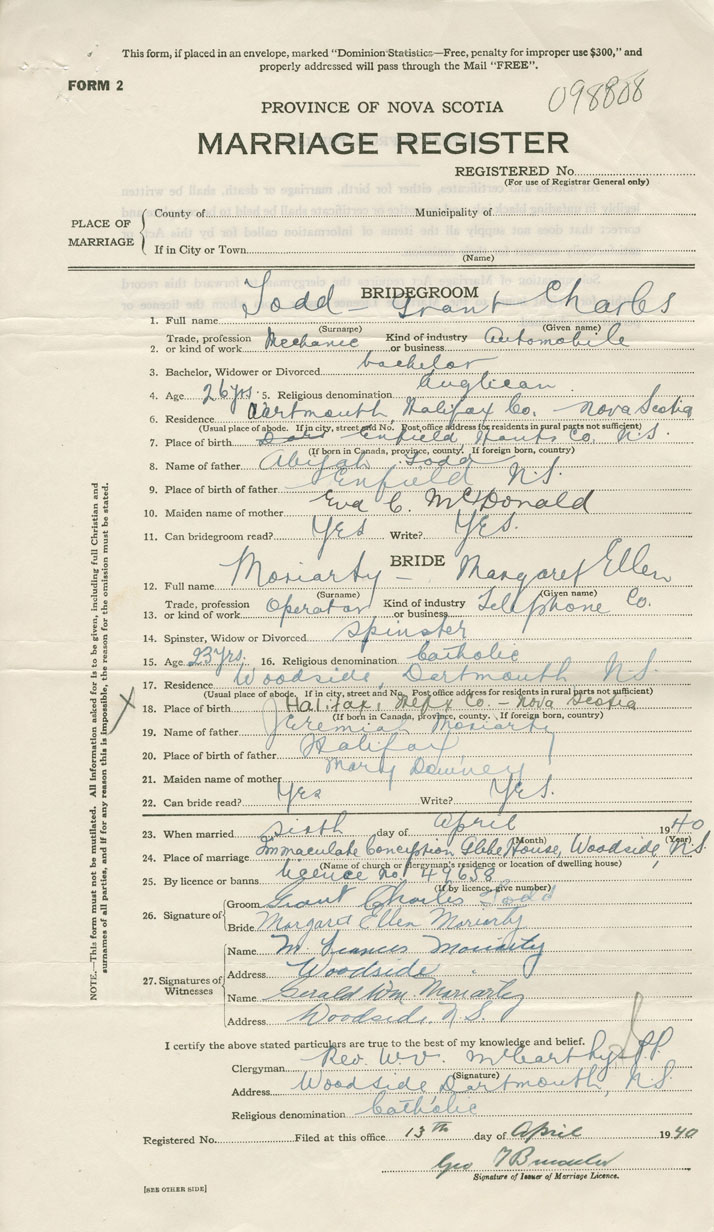 This form, if placed in an envelope, marked "Dominion Statistics—Free, penalty for improper use $300," and
properly addressed will pass through the Mail "FREE".
FORM 2
098808
PROVINCE OF NOVA SCOTIA
MARRIAGE REGISTER
REGISTERED No.
(For use of Registrar General only)
PLACE OF MARRIAGE
County of Municipality of
If in City or Town
(Name)
BRIDEGROOM
1. Full name Todd — Grant Charles
(Surname) (Given name)
2. Trade, profession or kind of work Mechanic Kind of industry or business Automobile
3. Bachelor, Widower or Divorced bachelor
4. Age 26 yrs. 5. Religious denomination Anglican
6. Residence Dartmouth, Halifax Co. — Nova Scotia
(Usual place of abode. If in city, street and No. Post office address for residents in rural parts not sufficient)
7. Place of birth Enfield, Hants Co. N.S.
(If born in Canada, province, county. If foreign born, country)
8. Name of father Abijah Todd
9. Place of birth of father Enfield N.S.
10. Maiden name of mother Eva C. McDonald
11. Can bridegroom read? Yes Write? Yes.
BRIDE
12. Full name Moriarty — Margaret Ellen
(Surname) (Given name)
13. Trade, profession or kind of work Operator Kind of industry or business Telephone Co.
14. Spinster, Widow or Divorced Spinster
15. Age 23 yrs. 16. Religious denomination Catholic
17. Residence Woodside, Dartmouth N.S.
(Usual place of abode. If in city, street and No. Post office address for residents in rural parts not sufficient)
18. Place of birth Halifax, Hlfx Co. — Nova Scotia
(If born in Canada, province, county. If foreign born, country)
19. Name of father Jeremiah Moriarty
20. Place of birth of father Halifax
21. Maiden name of mother Mary Downey
22. Can bride read? Yes Write? Yes.
23. When married sixth day of April 1940
(Month) (Year)
24. Place of marriage Immaculate Conception Glebe House, Woodside, N.S.
(Name of church or clergyman's residence or location of dwelling house)
25. By licence or banns licence no. 49658
(If by licence, give number)
26. Signature of
Groom Grant Charles Todd
Bride Margaret Ellen Moriarty
27. Signatures of Witnesses
Name M. Frances Moriarty
Address Woodside
Name Gerald Wm. Moriarty
Address Woodside. N.S.
I certify the above stated particulars are true to the best of my knowledge and belief.
Clergyman Rev. W.V. McCarthy P.P.
(Signature)
Address Woodside Dartmouth, N.S
Religious denomination Catholic
Registered No. Filed at this office 13th day of April 1940
Geo
Signature of Issuer of Marriage Licence.
[SEE OTHER SIDE]
NOTE.—This form must not be mutilated. All information asked for is to be given, including full Christian and
surnames of all parties, and if for any reason this is impossible, the reason for the omission must be stated.